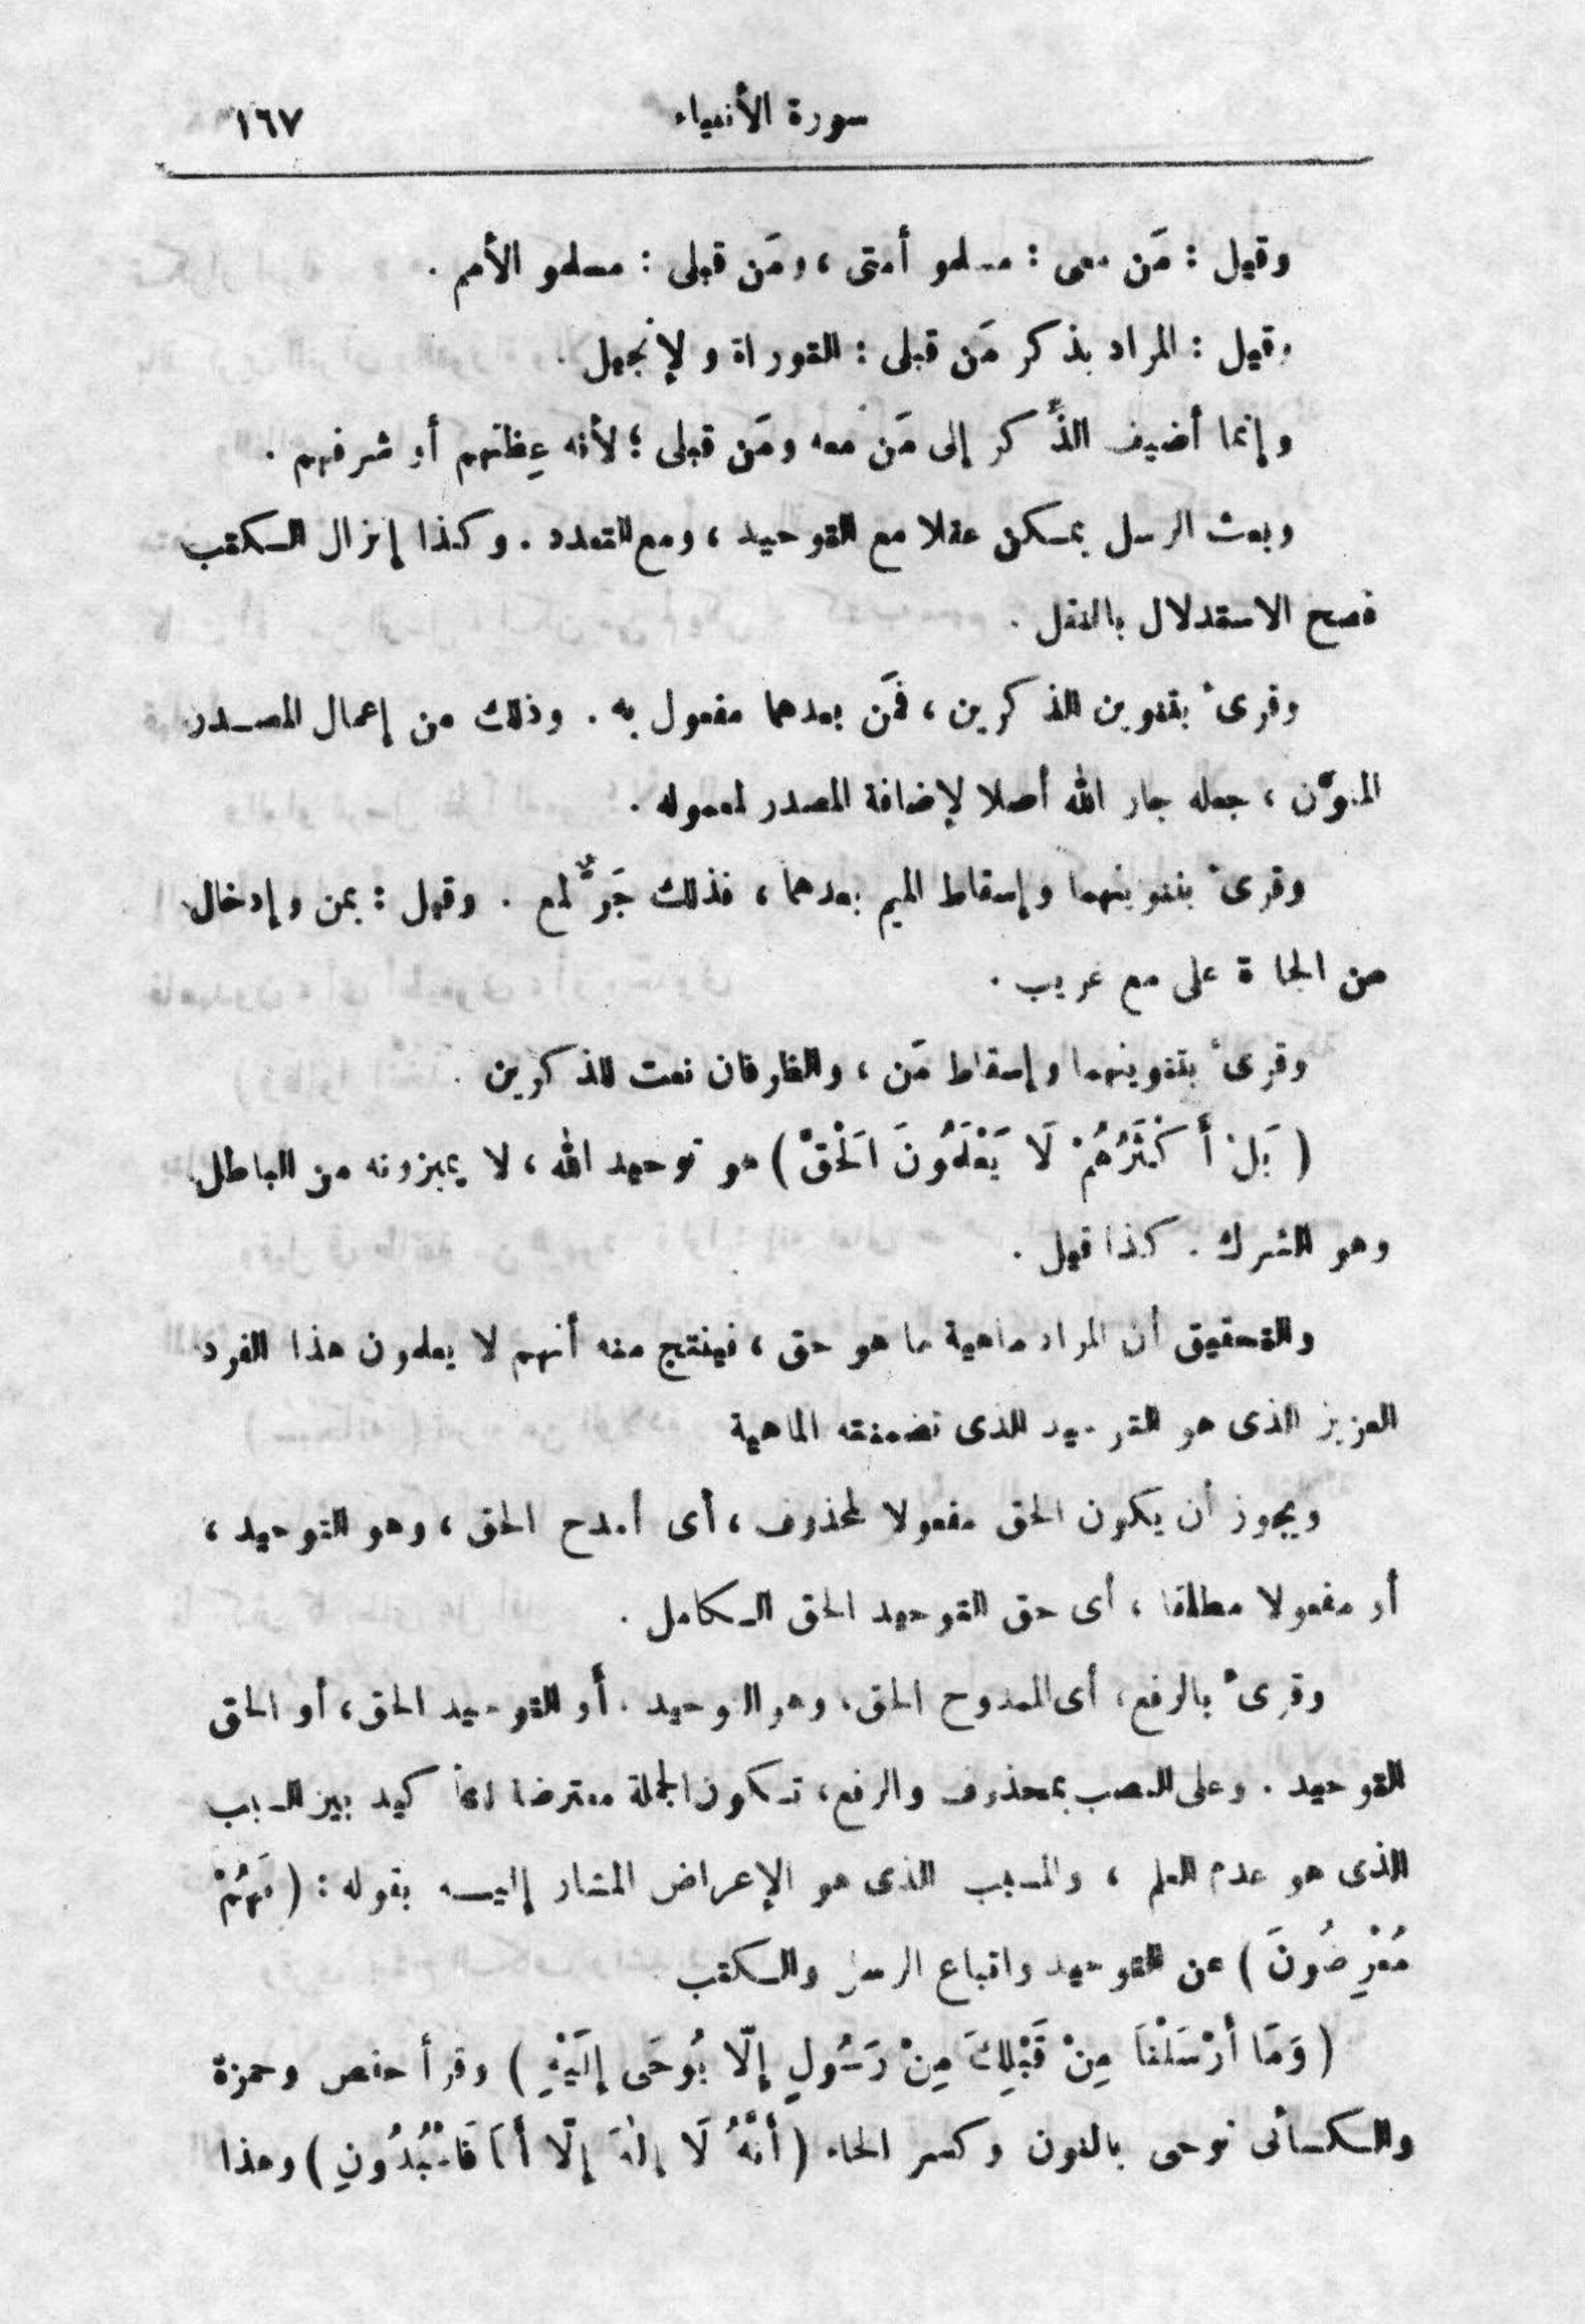 سورة الأنبياء ١٦٧
وقيل : مَن معى : مسلمو أمتى ، ومَن قبلى : مسلمو الأمم .
وقيل : المراد بذكر مَن قبلى : التوراة والإنجيل .
وإنما أضيف الذِّكر إلى مَن معه ومَن قبلى ؛ لأنه عِظتهم أو شرفهم .
وبعث الرسل يمكن عقلا مع التوحيد ، ومع التعدد . وكذا إنزال الكتب
فصح الاستدلال بالنقل .
وقرئ بتنوين الذكرين ، فمَن بعدهما مفعول به . وذلك من إعمال المصدر
المنوَّن ، جعله جار الله أصلا لإضافة المصدر لمعموله .
وقرئ بتنوينهما وإسقاط الميم بعدهما ، فذلك جَرٌّ لمع . وقيل : بمن وإدخال
من الجارة على مع غريب .
وقرئ بتنوينهما وإسقاط مَن ، والظرفان نعت للذكرين .
( بَلْ أَكْثَرُهُمْ لَا يَعْلَمُونَ الْحَقَّ ) هو توحيد الله ، لا يميزونه من الباطل
وهو الشرك . كذا قيل .
والتحقيق أن المراد ماهية ما هو حق ، فينتج منه أنهم لا يعلمون هذا الفرد
العزيز الذى هو التوحيد الذى تضمنته الماهية
ويجوز أن يكون الحق مفعولا لمحذوف ، أى أمدح الحق ، وهو التوحيد ،
أو مفعولا مطلقا ، أى حق التوحيد الحق الكامل .
وقرئ بالرفع ، أى الممدوح الحق ، وهو التوحيد . أو التوحيد الحق ، أو الحق
التوحيد . وعلى النصب بمحذوف والرفع ، تكون الجملة معترضا للتأكيد بين السبب
الذى هو عدم العلم ، والمسبب الذى هو الإعراض المشار إليه بقوله : ( فَهُمْ
مُعْرِضُونَ ) عن التوحيد واتباع الرسل والكتب
( وَمَا أَرْسَلْنَا مِنْ قَبْلِكَ مِنْ رَسُولٍ إِلَّا يُوحَى إِلَيْهِ ) وقرأ حفص وحمزة
والكسائى نوحى بالنون وكسر الحاء ( أَنَّهُ لَا إِلَهَ إِلَّا أَنَا فَاعْبُدُونِ ) وهذا